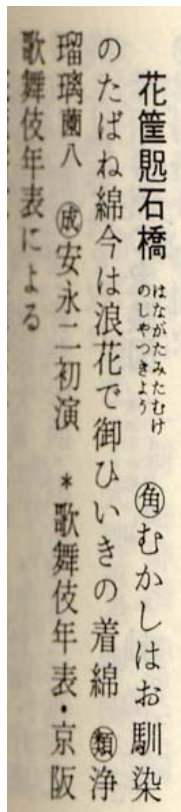 花筐贶石橋 はながたみたむけのしやつきよう ㊕むかしはお馴染
のたばね綿今は浪花で御ひいきの着綿 ㊮浄
瑠璃薗八 ㊎安永二初演 *歌舞伎年表・京阪
歌舞伎年表による